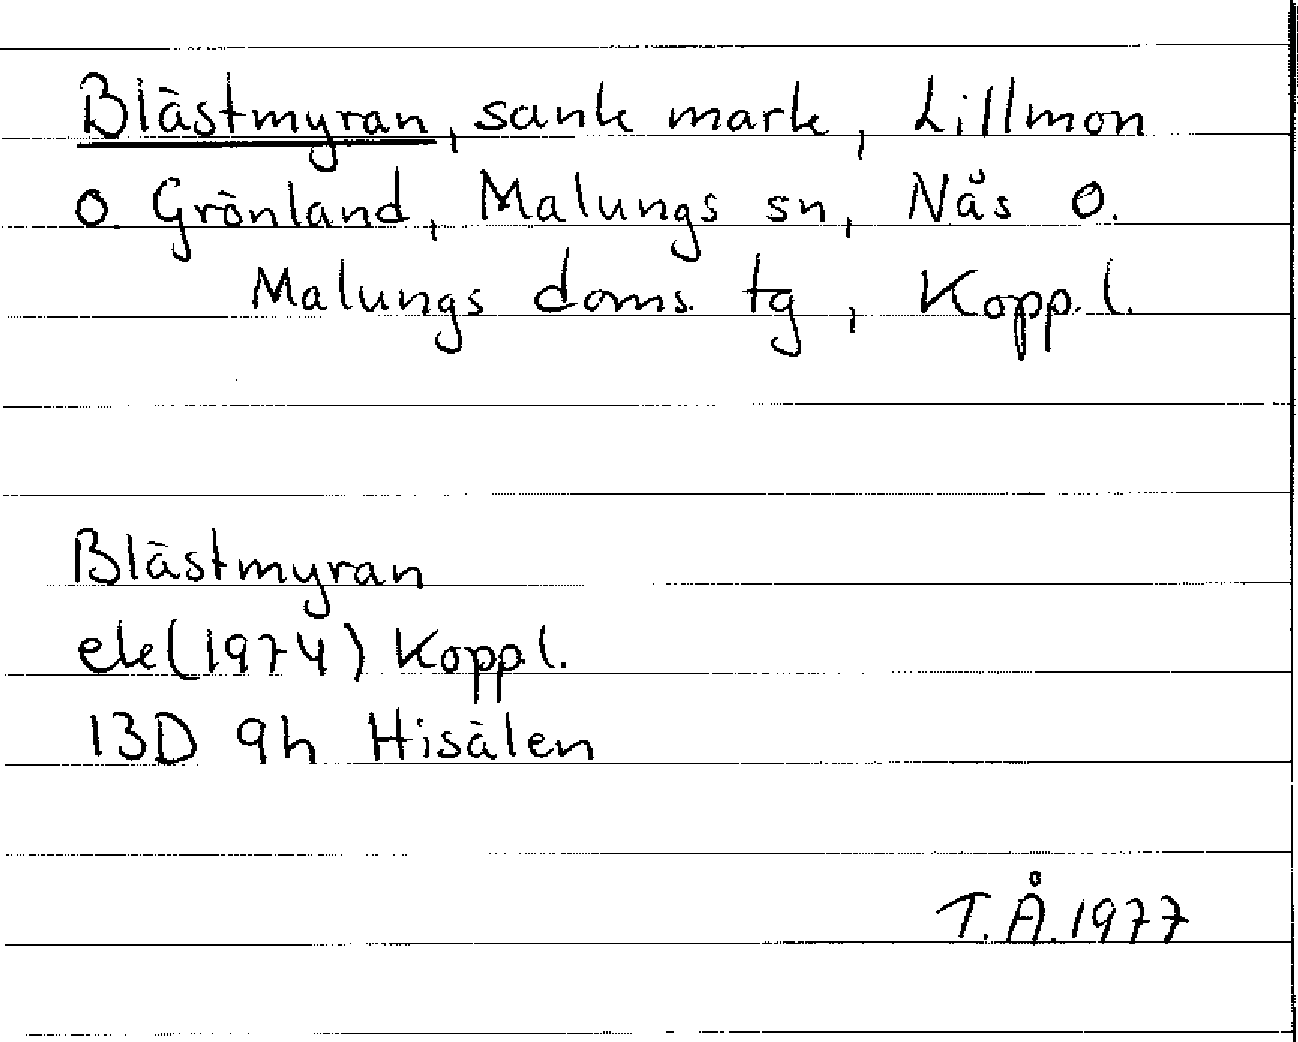 Blästmyran, sank mark, Lillmon
o. Grönland, Malungs sn, Nås o.
Malungs doms. tg, Kopp. l.
Blästmyran
ek (1974) Kopp l.
13D 9h Hisälen
T. Å. 1977